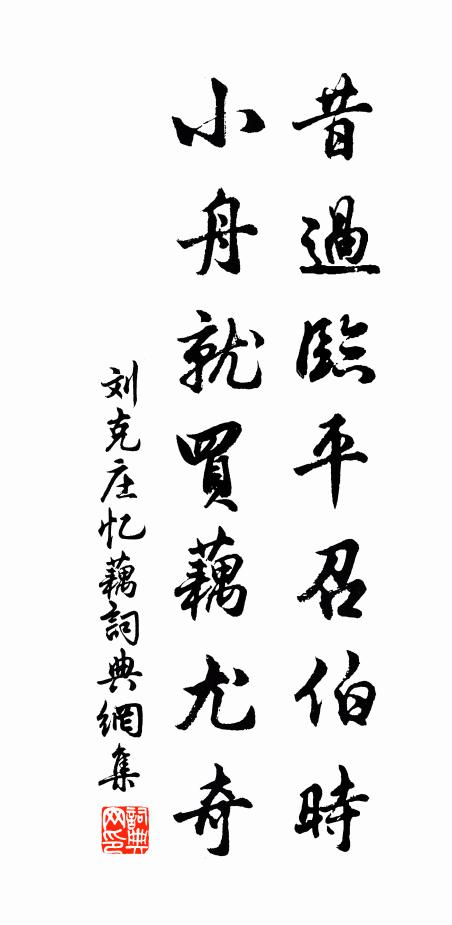 昔過臨平召伯時
小舟就買藕尤奇
刘克庄忆藕詞典網集
詞典网印